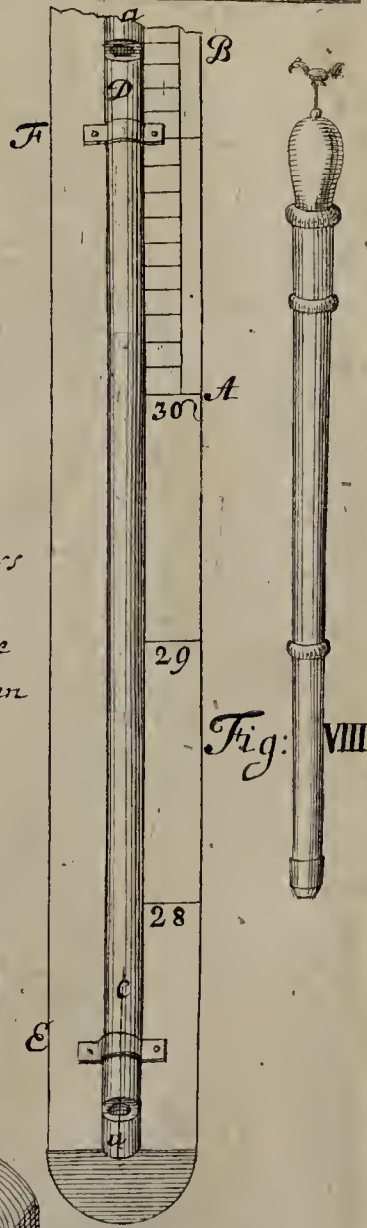 a
B
D
F
A
30
29
Fig: VIII
28
C
E
a